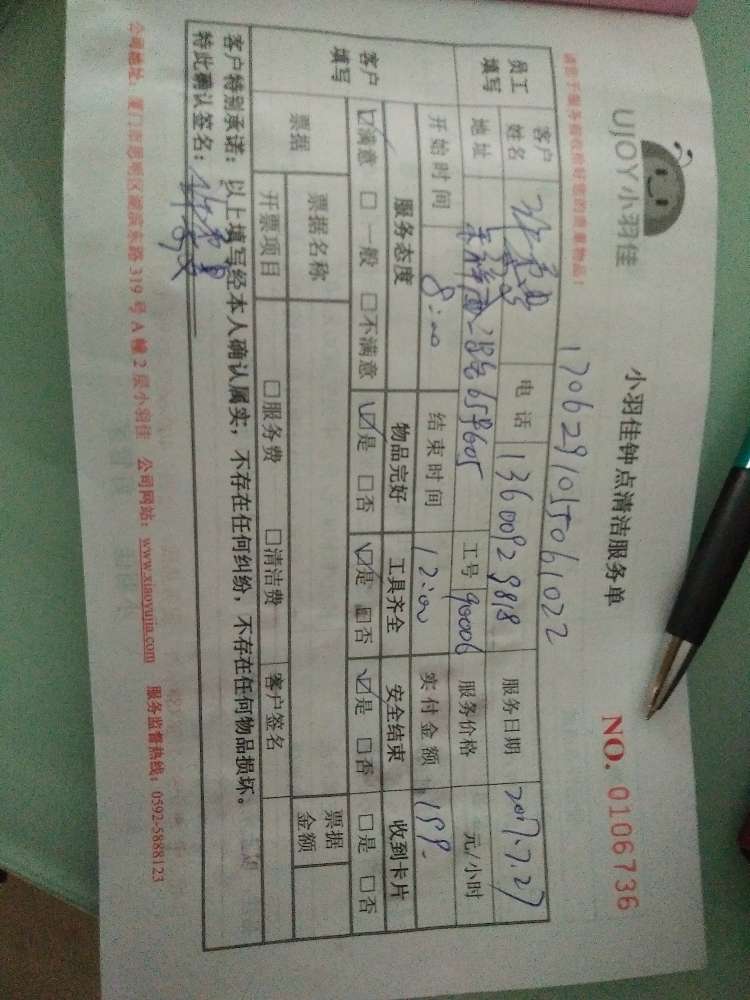 UJOY小羽佳
小羽佳钟点清洁服务单
NO. 0106736
请您于服务前收拾好您的贵重物品!
1706291055061022
员工填写
客户姓名 电话 13600929818 服务日期 2017.7.27
地址 28号659605 工号 90006 服务价格 元/小时
开始时间 8:00 结束时间 12:00 实付金额 159.
客户填写
服务态度 物品完好 工具齐全 安全结束 收到卡片
☑满意 □一般 □不满意 ☑是 □否 ☑是 □否 ☑是 □否 □是 □否
票据 票据名称 票据金额
开票项目 □服务费 □清洁费 客户签名
客户特别承诺:以上填写经本人确认属实,不存在任何纠纷,不存在任何物品损坏。
特此确认签名:
公司地址:厦门市思明区湖滨东路319号A幢2层小羽佳 公司网站:www.xiaoyujia.com 服务监督热线:0592-5888123